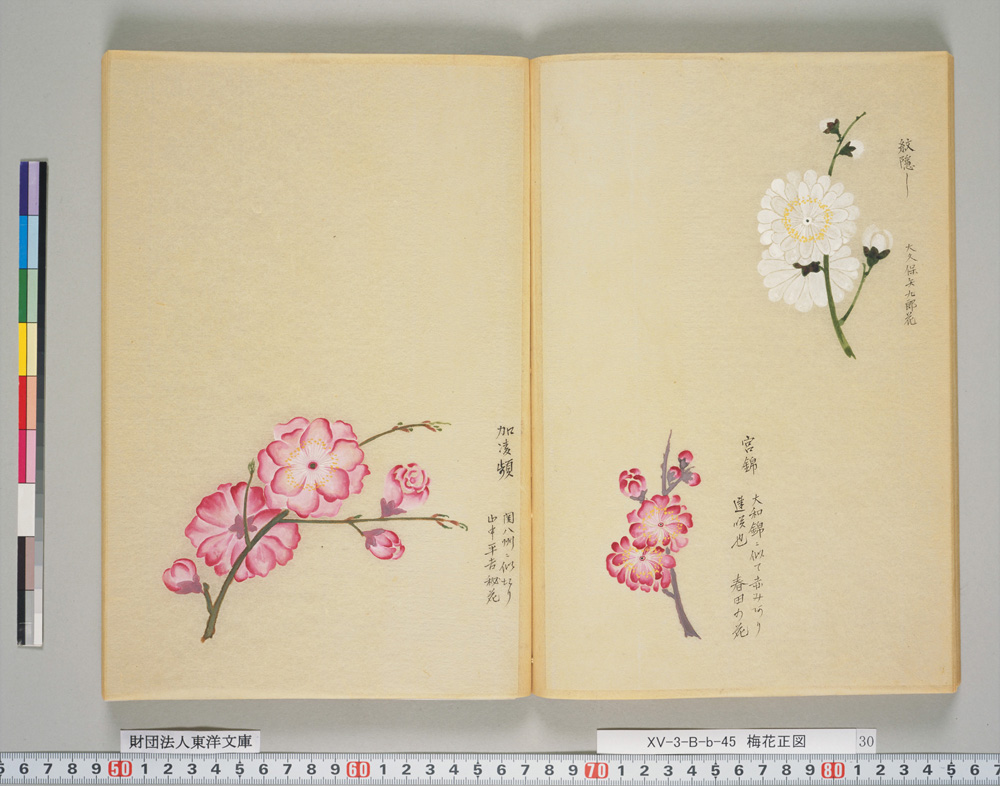 紋隠し
大久保与九郎花
宮錦
大和錦ニ似て赤みあり
蓮咲也 春田ゟ花
加凌頻
関八州ニ似たり
山中平吉秘花
財団法人東洋文庫
XV-3-B-b-45 梅花正図 30
5 6 7 8 9 50 1 2 3 4 5 6 7 8 9 60 1 2 3 4 5 6 7 8 9 70 1 2 3 4 5 6 7 8 9 80 1 2 3 4 5 6 7